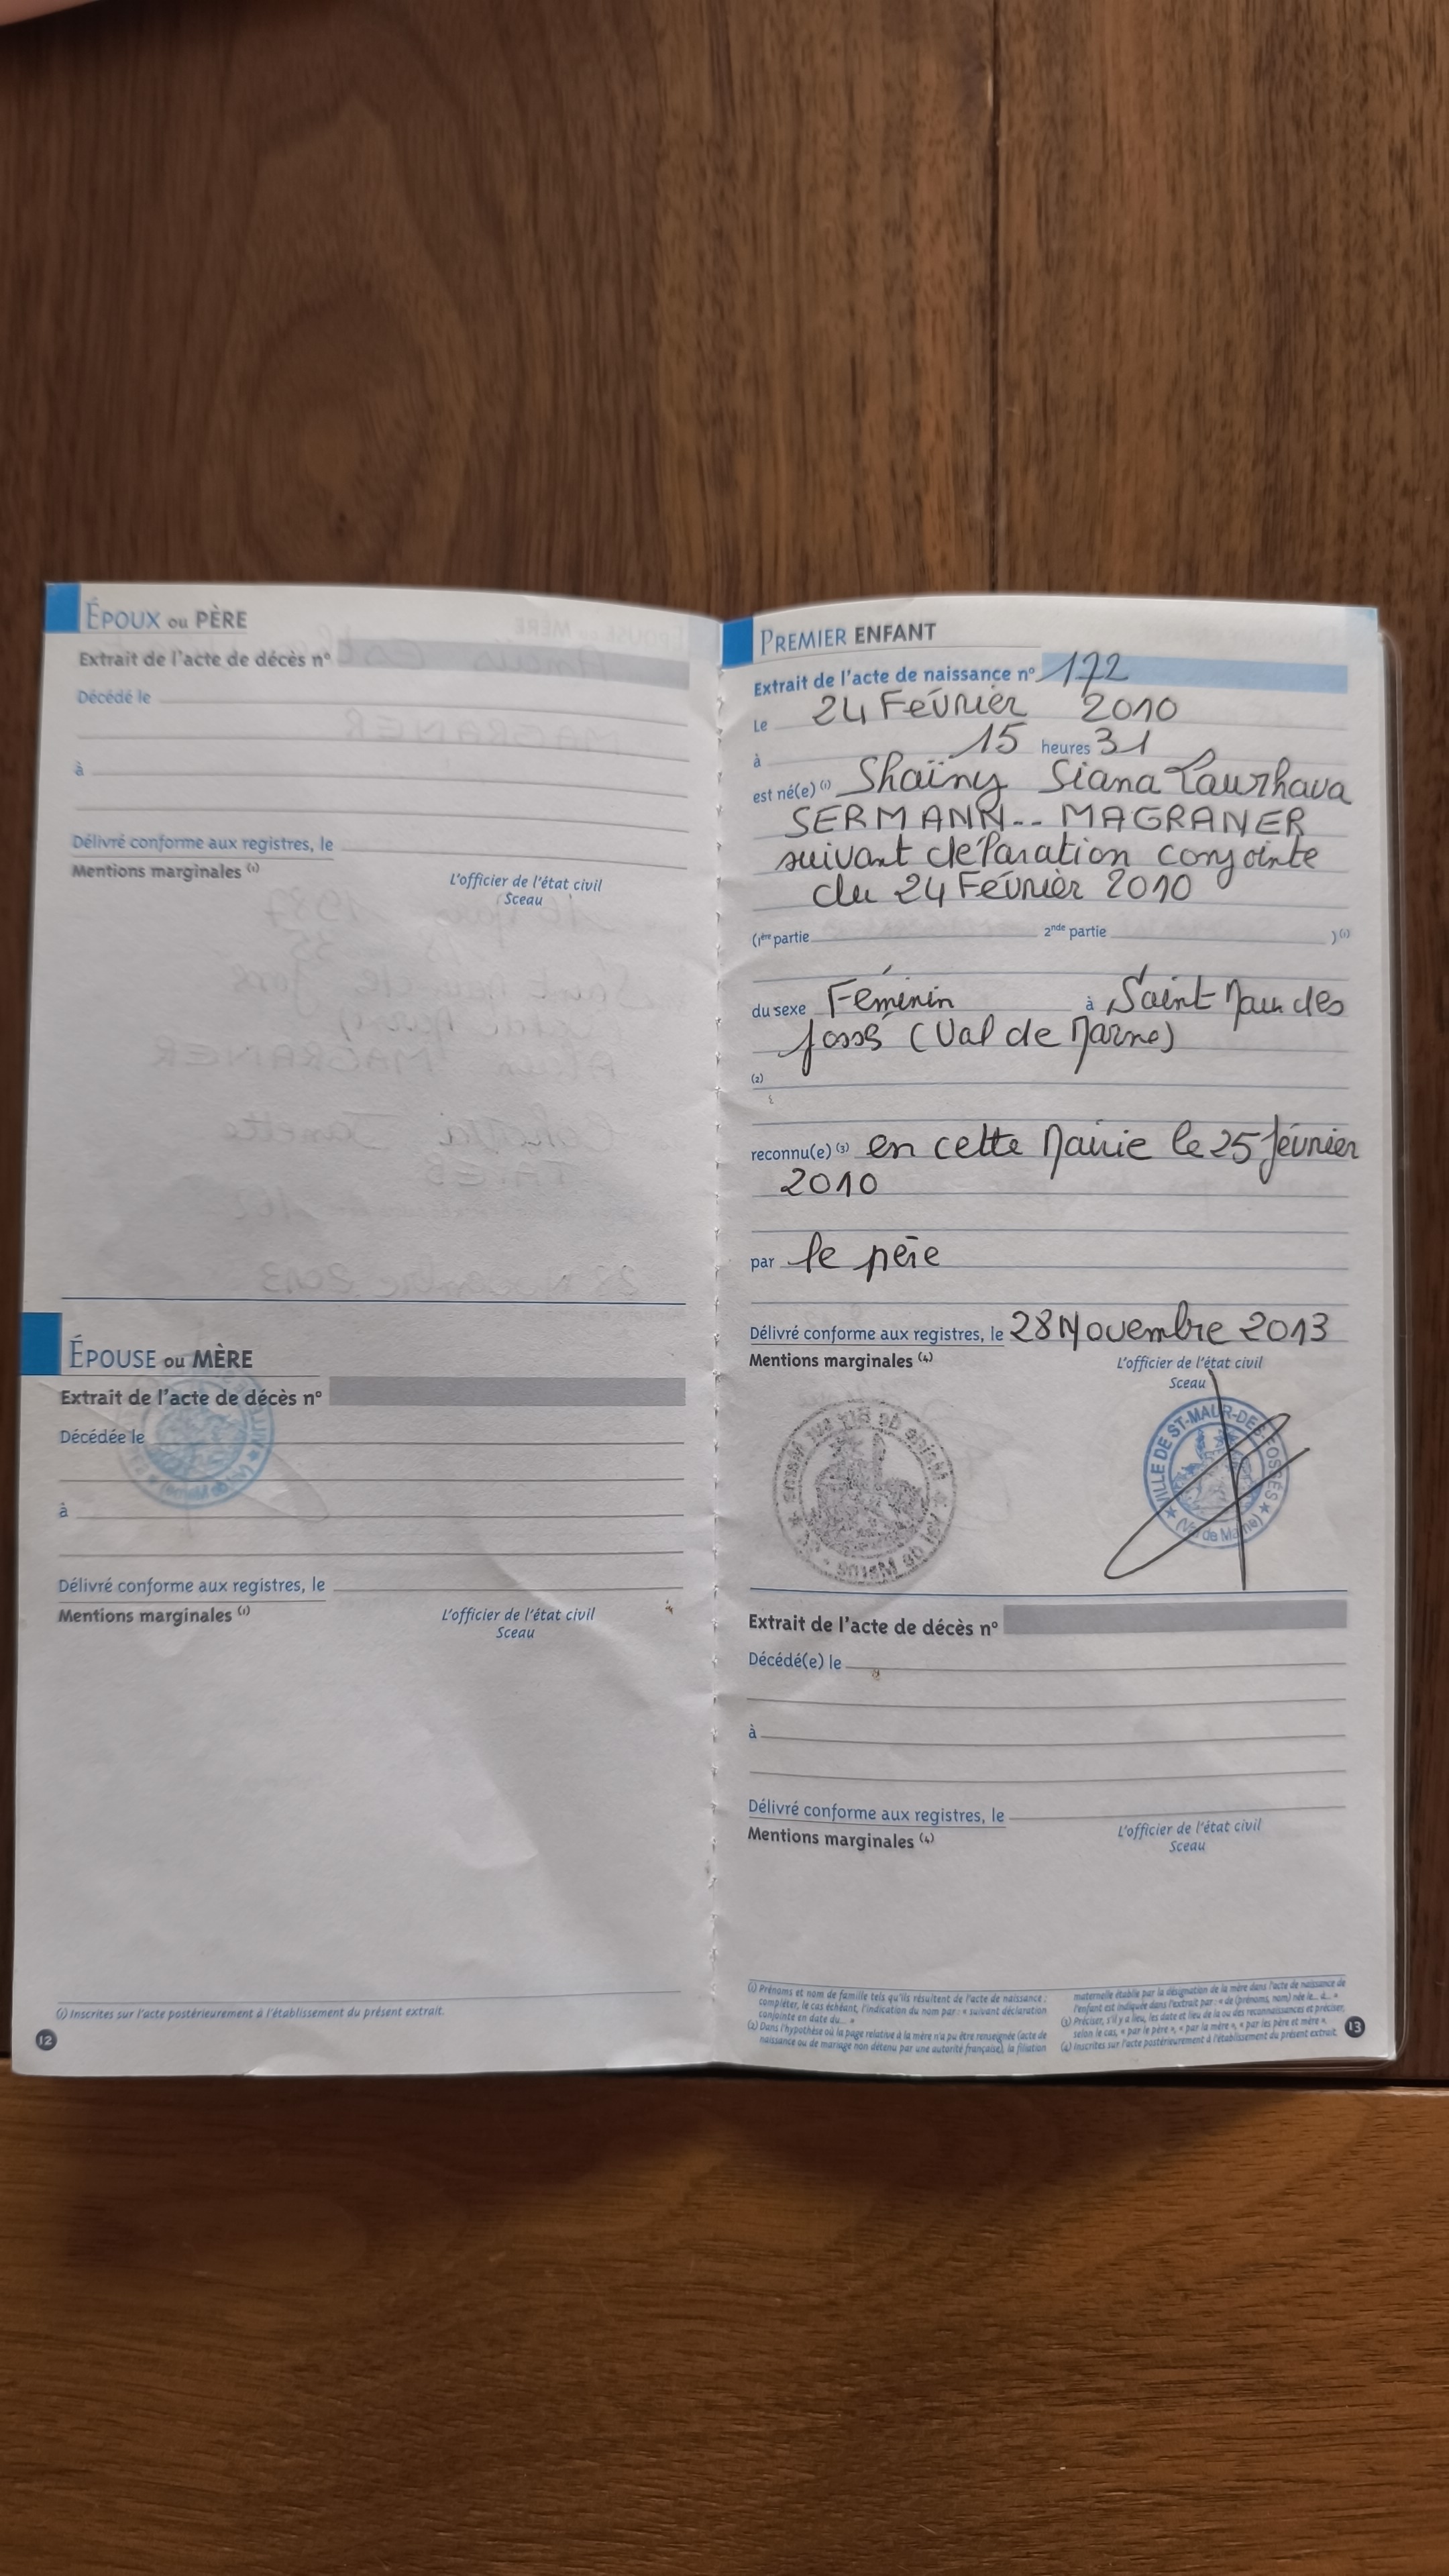 ÉPOUX ou PÈRE
Extrait de l'acte de décès n°
Décédé le
à
Délivré conforme aux registres, le
Mentions marginales (1)
L'officier de l'état civil
Sceau
ÉPOUSE ou MÈRE
Extrait de l'acte de décès n°
Décédée le
à
Délivré conforme aux registres, le
Mentions marginales (1)
L'officier de l'état civil
Sceau
(1) Inscrites sur l'acte postérieurement à l'établissement du présent extrait.
12
PREMIER ENFANT
Extrait de l'acte de naissance n° 172
Le 24 Février 2010
à 15 heures 31
est né(e) (1) Shaïny Siana
SERMANN -- MAGRANER
suivant déclaration conjointe
du 24 Février 2010
(1ère partie 2nde partie )(1)
du sexe Féminin à Saint Maur des
fossé (Val de Marne)
(2)
reconnu(e) (3) en cette Mairie le 25 février
2010
par le père
Délivré conforme aux registres, le 28 Novembre 2013
Mentions marginales (4)
L'officier de l'état civil
Sceau
VILLE DE ST-MAUR-DES-FOSSÉS
(Val de Marne)
Extrait de l'acte de décès n°
Décédé(e) le
à
Délivré conforme aux registres, le
Mentions marginales (4)
L'officier de l'état civil
Sceau
(1) Prénoms et nom de famille tels qu'ils résultent de l'acte de naissance ;
compléter, le cas échéant, l'indication du nom par : « suivant déclaration
conjointe en date du... »
(2) Dans l'hypothèse où la page relative à la mère n'a pu être renseignée (acte de
naissance ou de mariage non détenu par une autorité française), la filiation
maternelle établie par la désignation de la mère dans l'acte de naissance de
l'enfant est indiquée dans l'extrait par : « de (prénoms, nom) née le... à... »
(3) Préciser, s'il y a lieu, les date et lieu de la ou des reconnaissances et préciser,
selon le cas, « par le père », « par la mère », « par les père et mère ».
(4) Inscrites sur l'acte postérieurement à l'établissement du présent extrait.
13